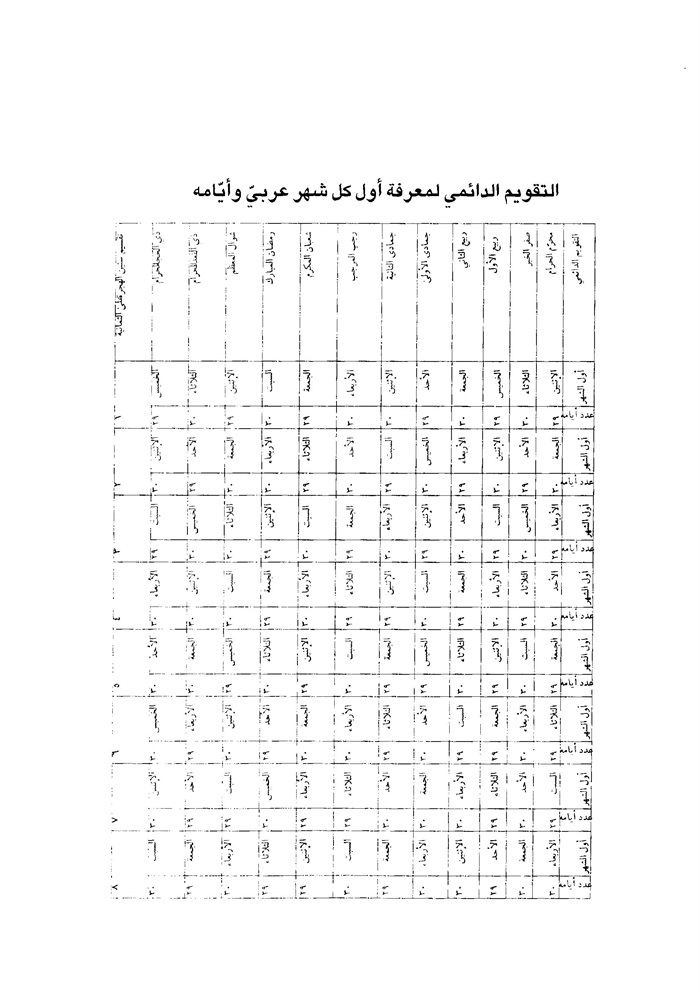 التقويم الدائمي لمعرفة أول كل شهر عربيّ وأيّامه
التقويم الدائمي محرّم الحرام صفر الخير ربيع الأول ربيع الثاني جمادى الأولى جمادى الثانية رجب المرجب شعبان المكرم رمضان المبارك شوال المعظم ذي القعدة الحرام ذي الحجة الحرام تقسيم سنين الهجرة على الثمانية
أول الشهر الإثنين الثلاثاء الخميس الجمعة الأحد الإثنين الأربعاء الجمعة السبت الإثنين الثلاثاء الخميس
عدد أيامه ٢٩ ٣٠ ٢٩ ٣٠ ٢٩ ٣٠ ٣٠ ٢٩ ٣٠ ٢٩ ٣٠ ٢٩ ١
أول الشهر الجمعة الأحد الإثنين الأربعاء الخميس السبت الأحد الثلاثاء الأربعاء الجمعة الأحد الإثنين
عدد أيامه ٣٠ ٢٩ ٣٠ ٢٩ ٣٠ ٢٩ ٣٠ ٢٩ ٣٠ ٣٠ ٢٩ ٣٠ ٢
أول الشهر الأربعاء الخميس السبت الأحد الإثنين الأربعاء الجمعة السبت الإثنين الثلاثاء الخميس السبت
عدد أيامه ٢٩ ٣٠ ٢٩ ٢٩ ٣٠ ٣٠ ٢٩ ٣٠ ٢٩ ٣٠ ٣٠ ٢٩ ٣
أول الشهر الأحد الثلاثاء الأربعاء الجمعة السبت الإثنين الثلاثاء الأربعاء الجمعة السبت الإثنين الأربعاء
عدد أيامه ٣٠ ٢٩ ٣٠ ٢٩ ٣٠ ٢٩ ٢٩ ٣٠ ٢٩ ٣٠ ٣٠ ٣٠ ٤
أول الشهر الجمعة السبت الإثنين الثلاثاء الخميس الجمعة السبت الإثنين الثلاثاء الخميس الجمعة الأحد
عدد أيامه ٢٩ ٣٠ ٢٩ ٣٠ ٢٩ ٢٩ ٣٠ ٢٩ ٣٠ ٢٩ ٣٠ ٣٠ ٥
أول الشهر الثلاثاء الأربعاء الجمعة السبت الأحد الثلاثاء الأربعاء الجمعة الأحد الإثنين الأربعاء الخميس
عدد أيامه ٢٩ ٣٠ ٢٩ ٢٩ ٣٠ ٢٩ ٣٠ ٣٠ ٢٩ ٣٠ ٢٩ ٣٠ ٦
أول الشهر السبت الأحد الثلاثاء الأربعاء الجمعة الأحد الثلاثاء الأربعاء الخميس السبت الأحد الإثنين
عدد أيامه ٢٩ ٣٠ ٢٩ ٣٠ ٣٠ ٣٠ ٢٩ ٢٩ ٣٠ ٢٩ ٢٩ ٣٠ ٧
أول الشهر الأربعاء الجمعة الأحد الإثنين الأربعاء الجمعة السبت الإثنين الثلاثاء الأربعاء الجمعة السبت
عدد أيامه ٣٠ ٣٠ ٢٩ ٣٠ ٣٠ ٢٩ ٣٠ ٢٩ ٢٩ ٣٠ ٢٩ ٣٠ ٨